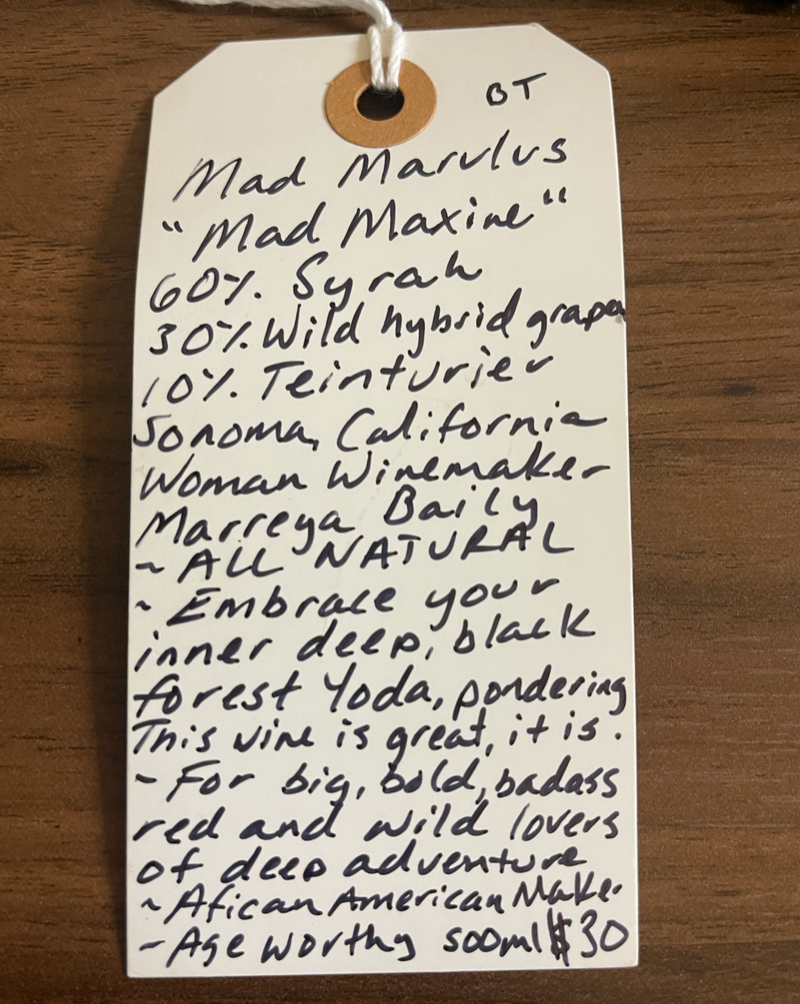 BT
Mad Marvlus
"Mad Maxine"
60% Syrah
30% Wild hybrid grapes
10% Teinturier
Sonoma, California
Woman Winemaker
Marreya Baily
~ ALL NATURAL
~ Embrace your
inner deep, black
forest Yoda, pondering
This wine is great, it is.
~ For big, bold, badass
red and wild lovers
of deep adventure
~ African American Maker
~ Age worthy 500ml $30